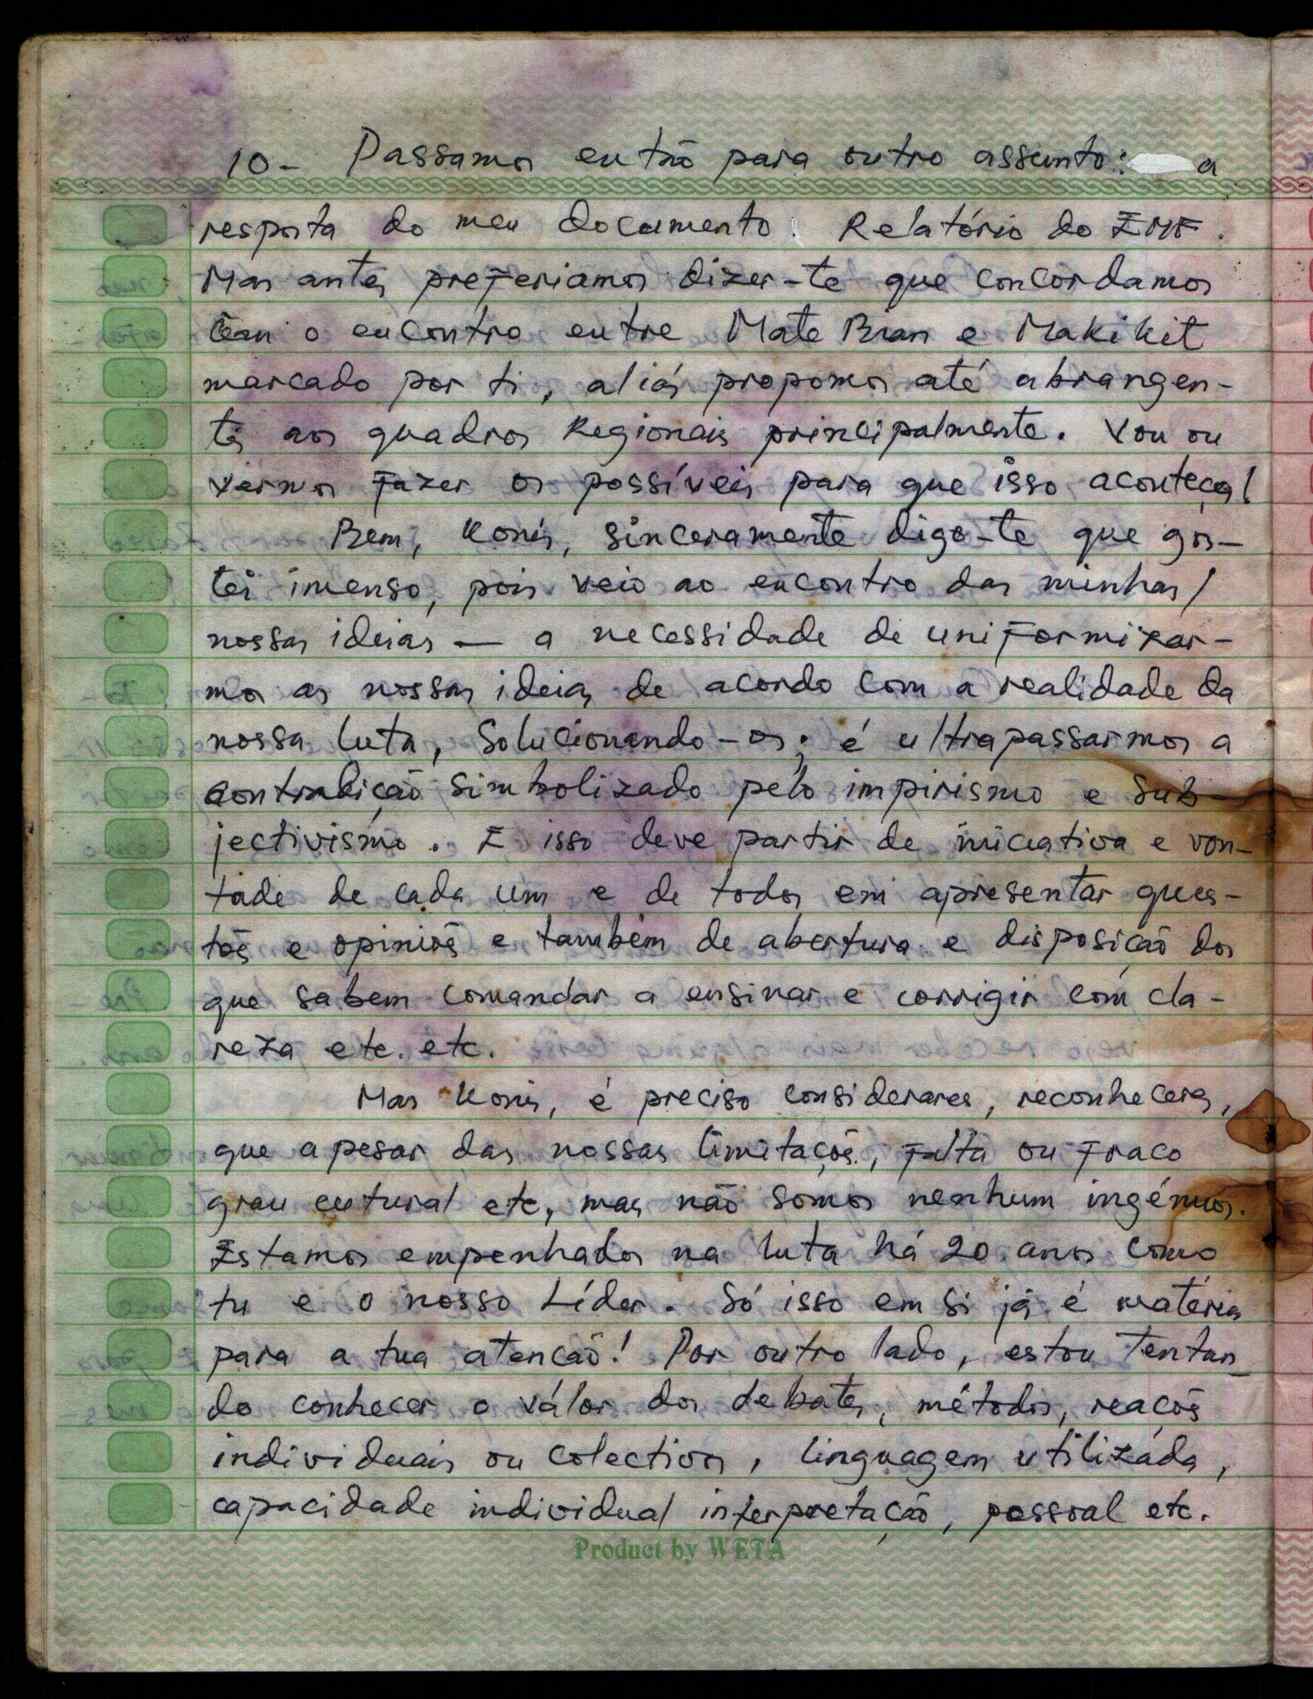 10- Passamos então para outro assunto: a
resposta do meu documento: Relatório do EMF.
Mas antes preferiamos dizer-te que concordamos
com o encontro entre Mate Bian e Makikit
marcado por ti, aliás propomos até abrangen-
tes aos quadros Regionais principalmente. Vou ou
vamos fazer os possíveis para que isso aconteça!
Bem, Konis, sinceramente digo-te que gos-
tei imenso, pois veio ao encontro das minhas/
nossas ideias — a necessidade de uniformizar-
mos as nossas ideias de acordo com a realidade da
nossa luta, solucionando-os; é ultrapassarmos a
contradição simbolizado pelo impirismo e sub-
jectivismo. E isso deve partir de iniciativa e von-
tade de cada um e de todos em apresentar ques-
tões e opiniões e também de abertura e disposição dos
que sabem comandar a ensinar e corrigir com cla-
reza etc. etc.
Mas Konis, é preciso considerares, reconheceres,
que apesar das nossas limitações, falta ou fraco
grau cutural etc, mas não somos nenhum ingénuos.
Estamos empenhados na luta há 20 anos como
tu e o nosso Líder. Só isso em si já é matéria
para a tua atenção! Por outro lado, estou tentan-
do conhecer o válor dos debates, métodos, reações
individuais ou colectivos, linguagem utilizada,
capacidade individual interpretação, pessoal etc.
Product by WETA